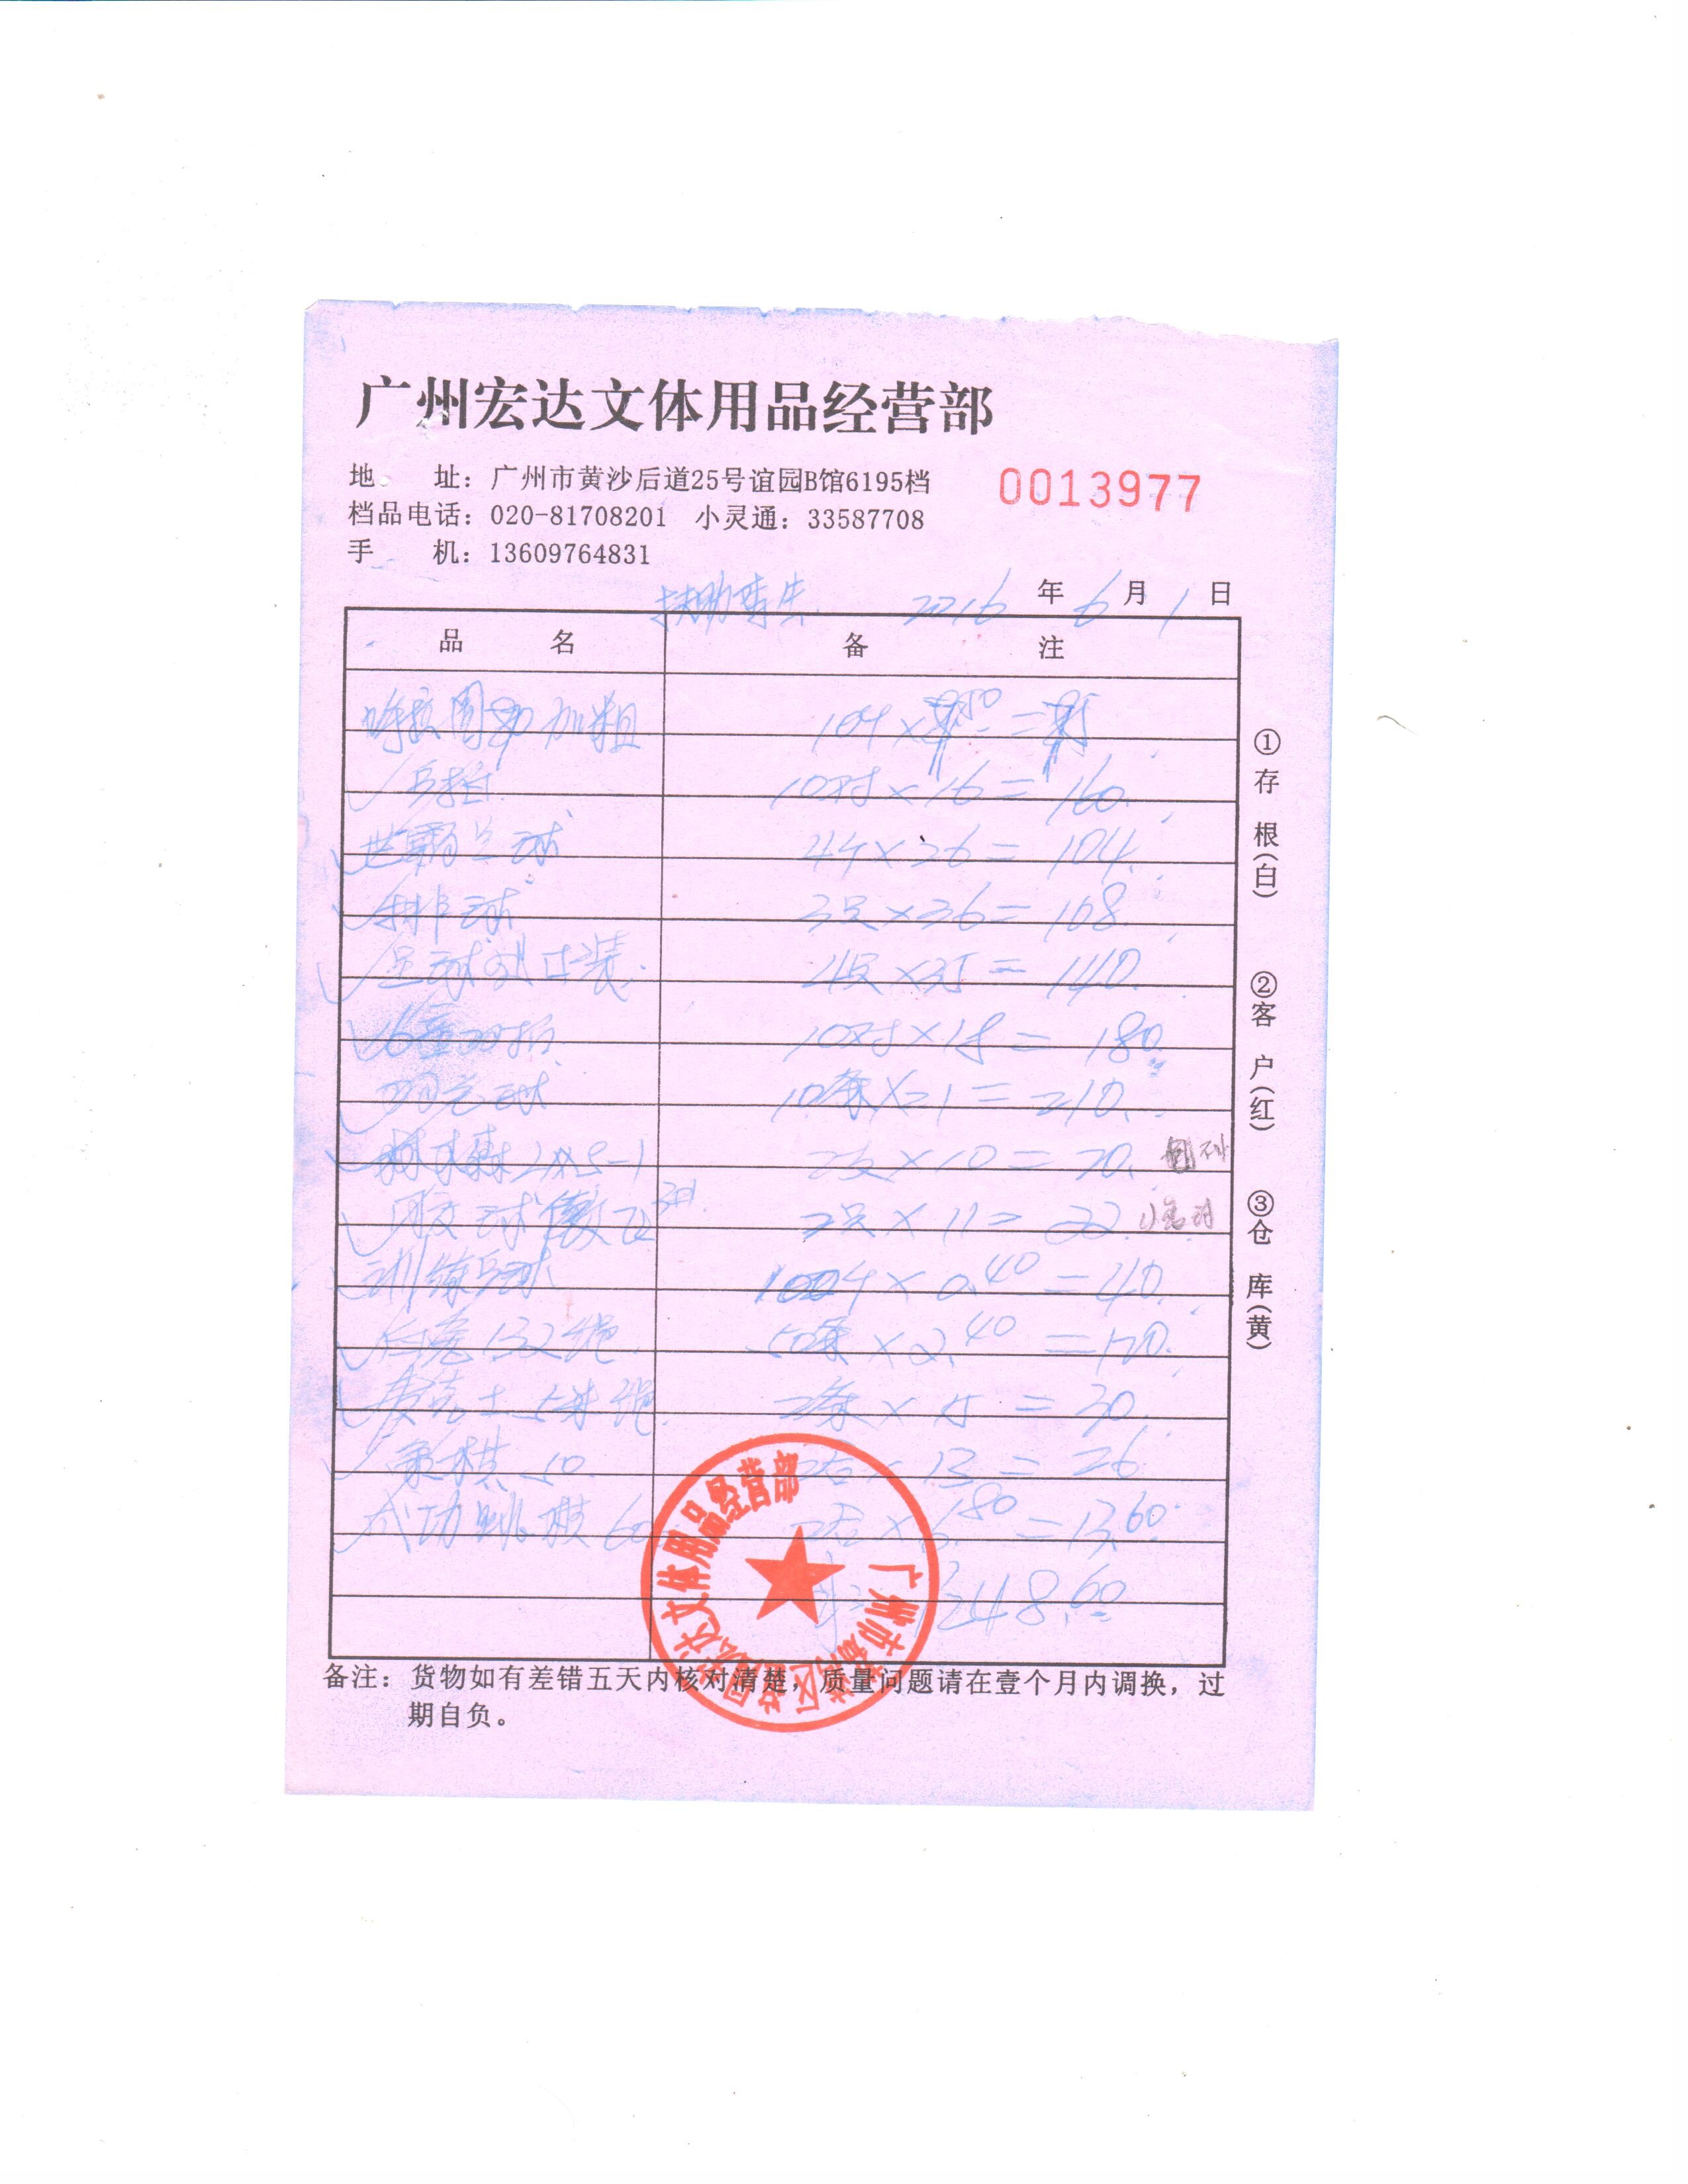 广州宏达文体用品经营部
地 址：广州市黄沙后道25号谊园B馆6195档
0013977
档品电话：020-81708201 小灵通：33587708
手 机：13609764831
2016 年 6 月 1 日
品 名 备 注
加粗
乒拍 10对×16=160.
世霸兰球 4个×26=104.
排球 3只×36=108.
足球 装 4只×35=140.
羽拍 10对×18=180.
羽毛球 10条×21=210.
2支×10=20.
球 2只×11=22.
训练乒球 100个×0.40=40.
132绳 50条×2.40=120.
麦克士5米绳 2条×15=30.
象棋50. 13=26.
成功跳棋60 ×6.80=13.60
1248.60
备注：货物如有差错五天内核对清楚，质量问题请在壹个月内调换，过
期自负。
①存根(白)
②客户(红)
③仓库(黄)